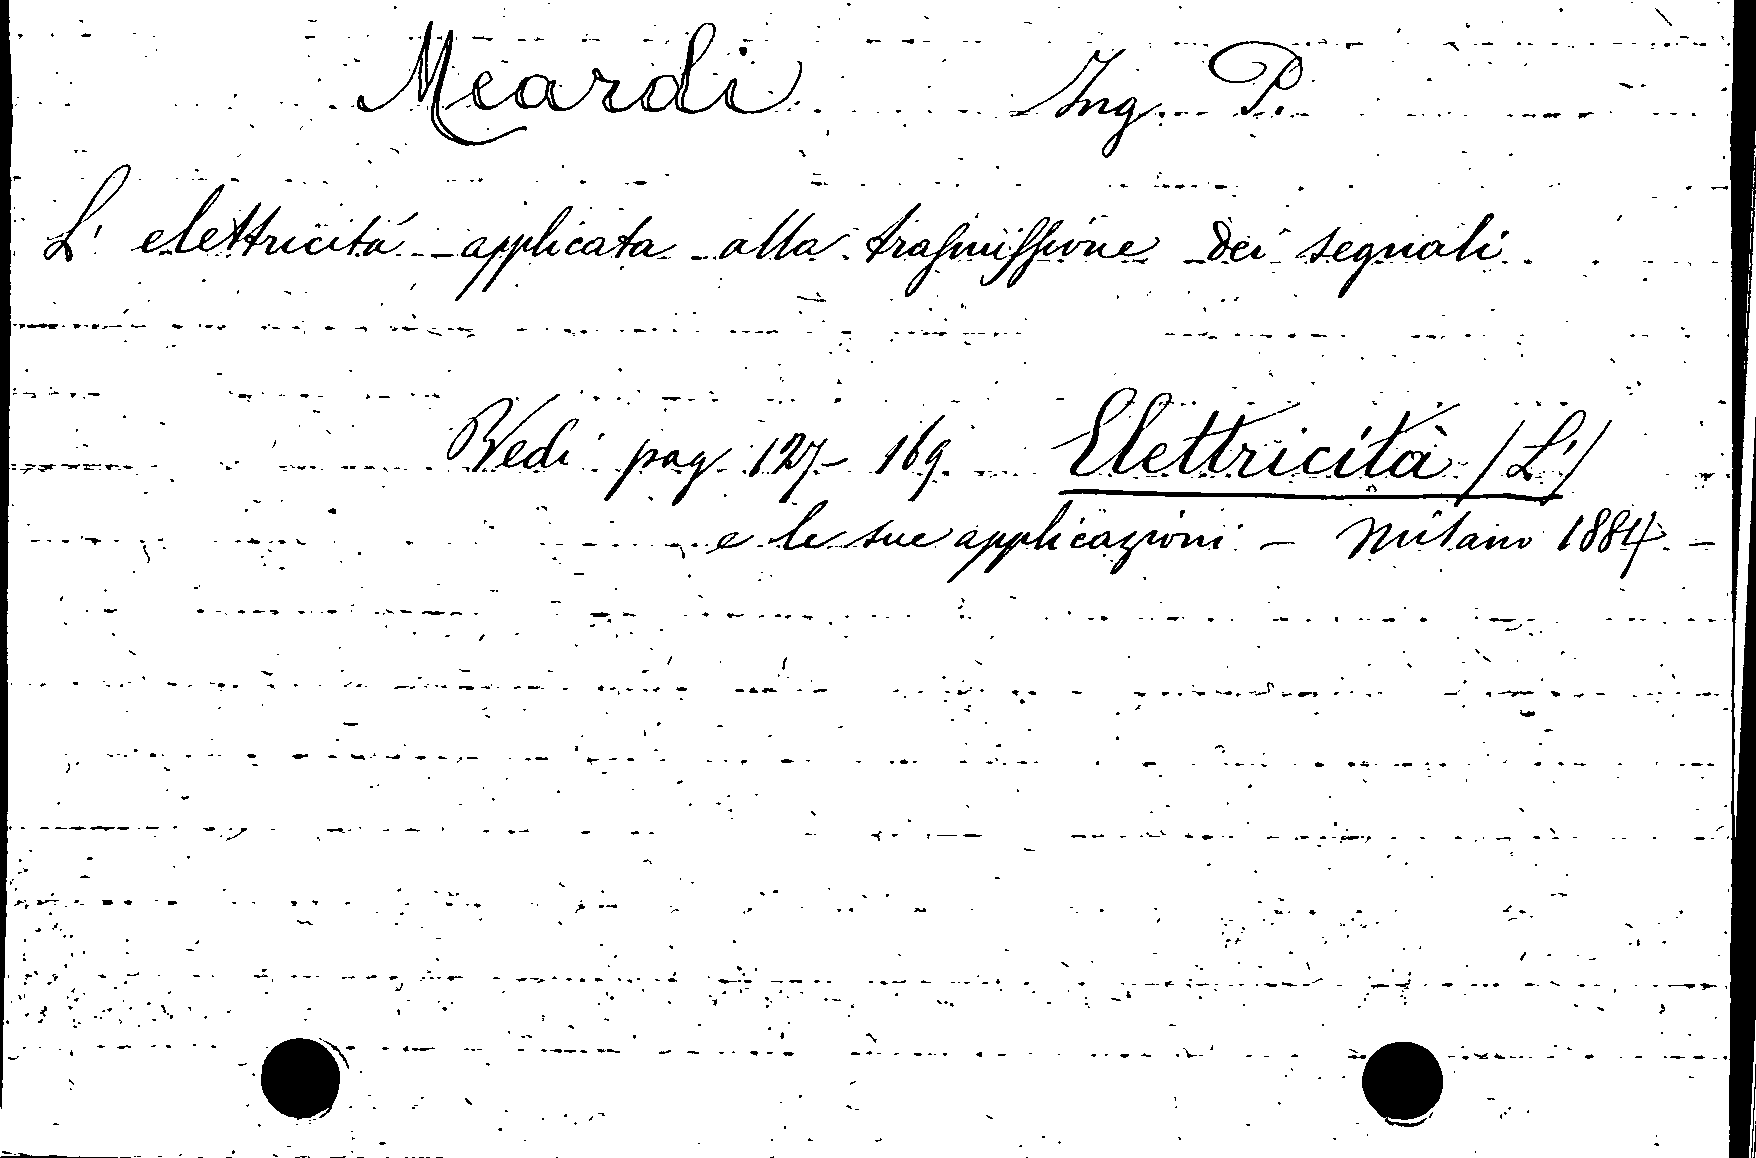 Meardi Ing. P.
L' elettricità applicata alla trasmissione dei segnali.
Vedi pag. 127-169. Elettricità /L'/
e le sue applicazioni - Milano 1884. -